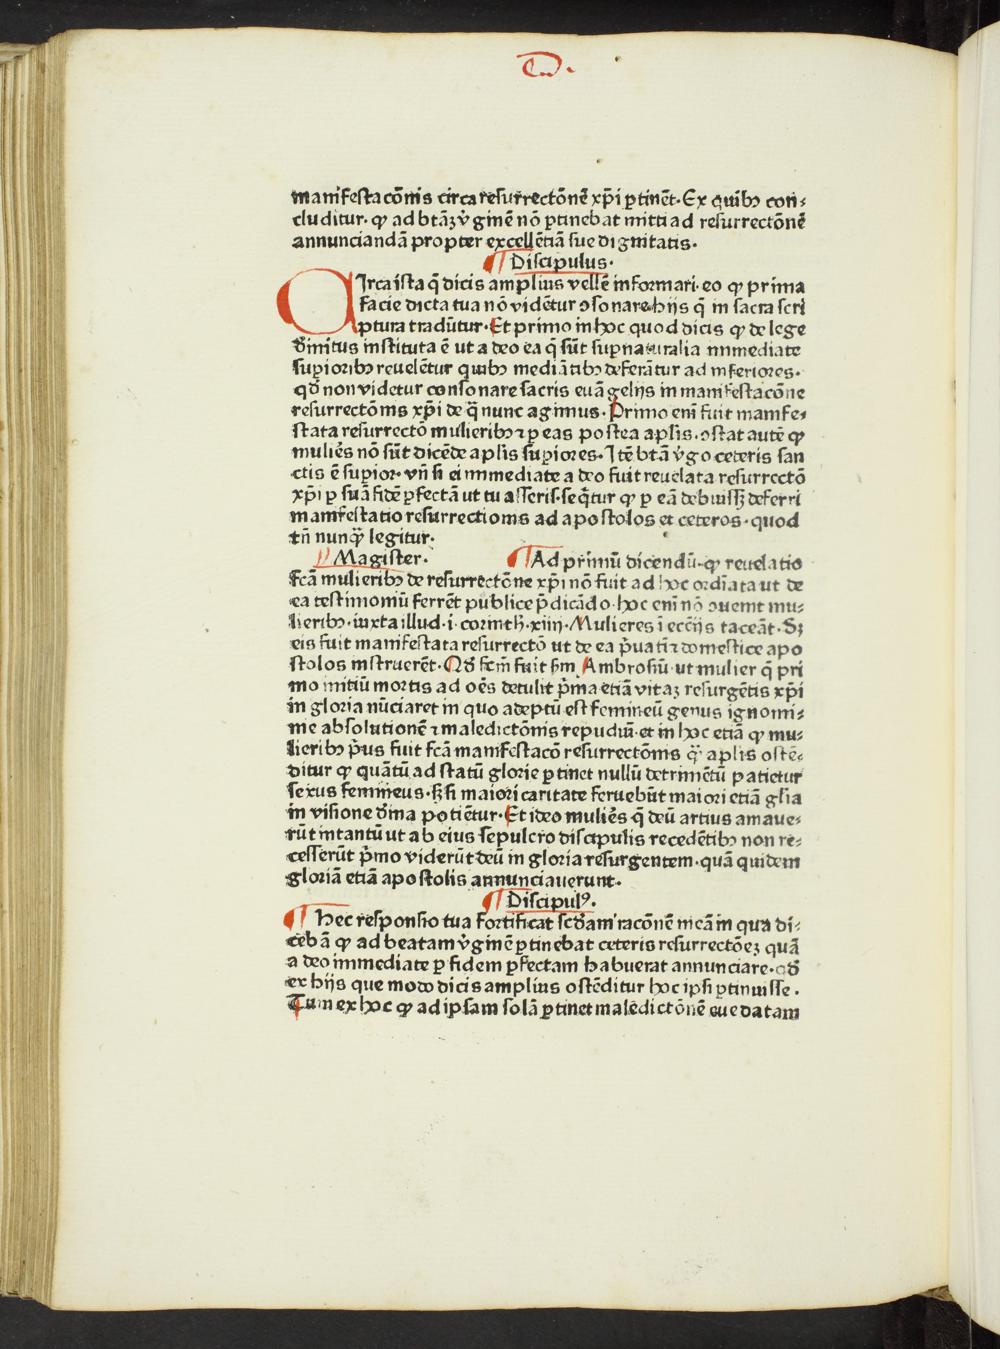 manifestacōnis circa resurrectōnē xp̄i ꝑtinēt. Ex quibꝫ con⸗
cluditur. ꝙ ad btāꝫ v̄ginē nō ꝑtinebat mitti ad resurrectōnē
annunciandā propter excellētiā sue dignitatis.
¶ Discipulus.
CIrca ista q̄ dicis amplius vellē informari. eo ꝙ prima
facie dicta tua nō vidētur ↄsonare hijs q̄ in sacra scri
ptura tradūtur. Et primo in hoc quod dicis ꝙ de lege
diuinitus instituta ē ut a deo ea q̄ sūt sup̄naturalia inmediate
suꝑioribꝫ reuelētur quibꝫ mediātibꝫ deferātur ad inferiores.
qd̄ non videtur consonare sacris euāgelijs in manifestacōne
resurrectōnis xp̄i de q̄ nunc agimus. Primo eni fuit manife⸗
stata resurrectō mulieribꝫ ⁊ ꝑ eas postea aplīs. ↄstat autē ꝙ
muliēs nō sūt dicēde aplīs suꝑiores. Itē btā v̄go ceteris san
ctis ē suꝑior. vn̄ si ei inmediate a deo fuit reuelata resurrectō
xp̄i ꝑ suā fidē ꝑfectā ut tu asseris. seq̄tur ꝙ ꝑ eā debuissꝫ deferri
manifestatio resurrectionis ad apostolos et ceteros. quod
tn̄ nunq̄ȝ legitur.
¶ Magister. ¶ Ad primū dicendū. ꝙ reuelatio
fcā mulieribꝫ de resurrectōne xp̄i nō fuit ad hoc ordīata ut de
ea testimoniū ferrēt publice p̄dicādo. hoc eni nō ↄuenit mu⸗
lieribꝫ. iuxta illud. i. corinth̄. xiiij. Mulieres ī ecc̄ijs taceāt. Sꝫ
eis fuit manifestata resurrectō ut de ea p̄uatī ⁊ domestice apo
stolos instruerēt. Qd̄ fcm̄ fuit fm̄ Ambrosiū. ut mulier q̄ pri
mo initiū mortis ad oēs detulit p̄ma etiā vitaꝫ resurgētis xp̄i
in gloria nūciaret in quo adeptū est femineū genus ignomi⸗
nie absolutionē ⁊ maledictōnis repudiū. et in hoc etiā ꝙ mu⸗
lieribꝫ p̄us fuit fcā manifestacō resurrectōnis q̄ȝ aplīs ostē⸗
ditur ꝙ quātū ad statū glorie ꝑtinet nullū detrimētū patietur
sexus femineus. sꝫ si maiori caritate feruebūt maiori etiā glīa
in visione diuīna potiētur. Et ideo muliēs q̄ deū artius amaue⸗
rūt intantū ut ab eius sepulcro discipulis recedētibꝫ non re⸗
cesserūt p̄mo viderūt deū in gloria resurgentem. quā quidem
gloriā etiā apostolis annunciauerunt.
¶ Discipulꝰ.
¶ hec responsio tua fortificat scd̄am racōnē meā in qua di⸗
cebā ꝙ ad beatam v̄ginē ꝑtinebat ceteris resurrectōeꝫ quā
a deo immediate ꝑ fidem ꝑfectam habuerat annunciare. qd̄
ex hijs que modo dicis amplius ostēditur hoc ipsi ꝑtinuisse.
Tum ex hoc ꝙ ad ipsam solā ꝑtinet maledictōnē eue datam